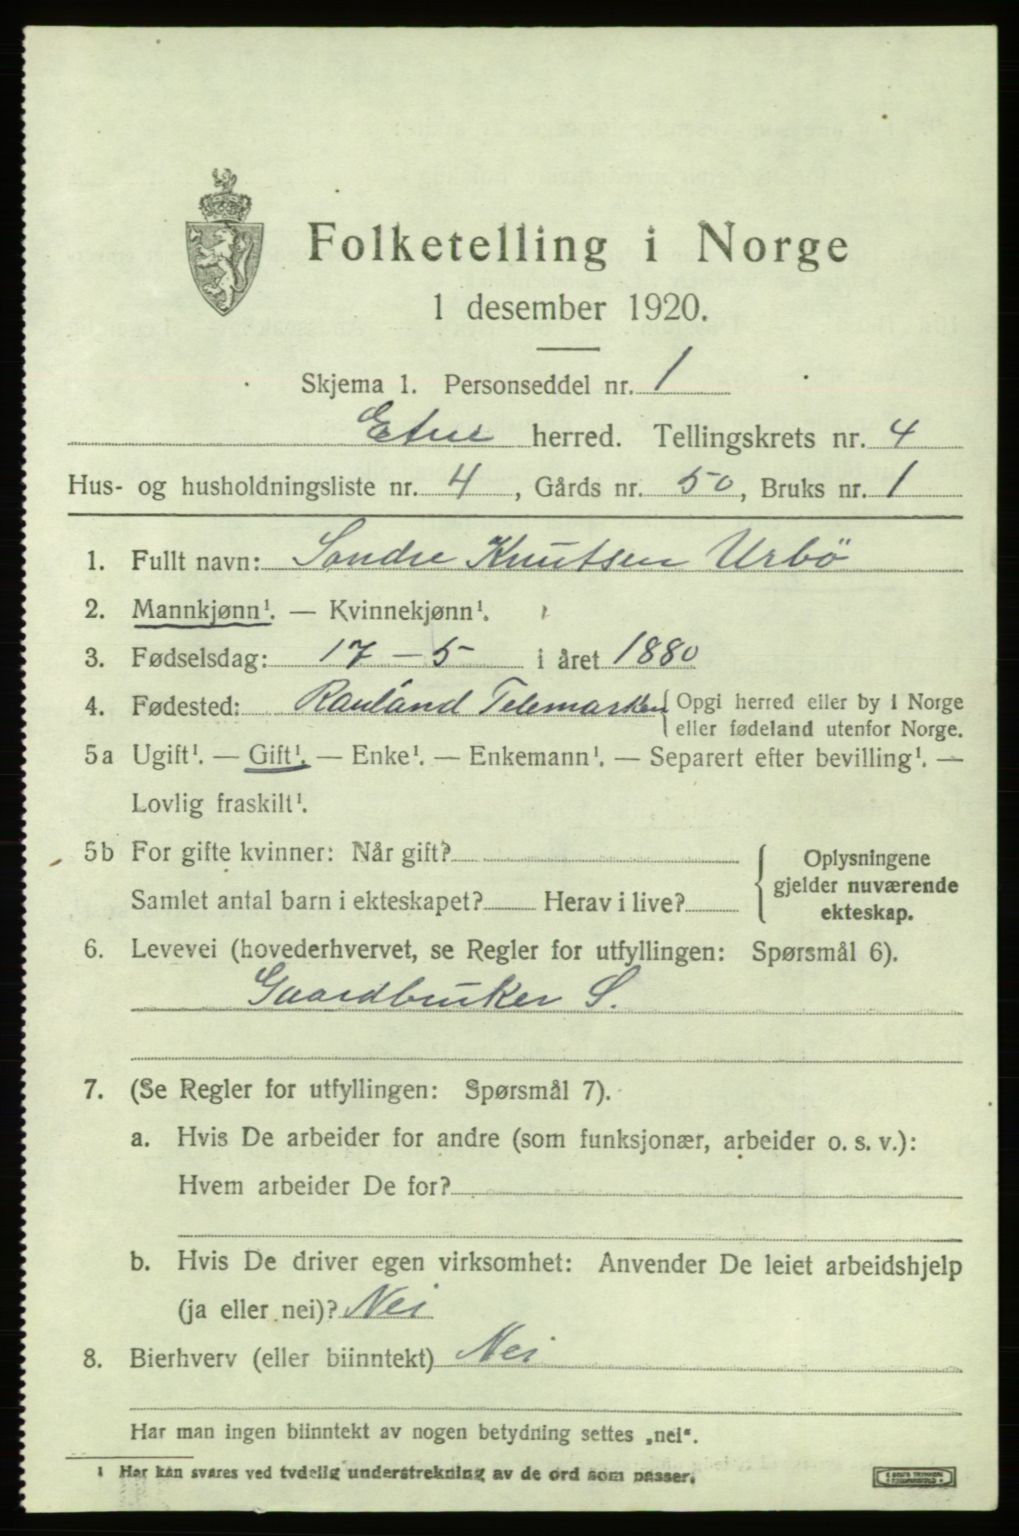 Folketelling i Norge
1 desember 1920.
Skjema 1. Personseddel nr. 1
Etne herred. Tellingskrets nr. 4
Hus- og husholdningsliste nr. 4, Gårds nr. 50, Bruks nr. 1
1. Fullt navn: Sondre Knutsen Urbö
2. Mannkjønn¹. — Kvinnekjønn¹.
3. Fødselsdag: 17 – 5 i året 1880
4. Fødested: Rauland Telemarken {Opgi herred eller by i Norge
eller fødeland utenfor Norge.
5a Ugift¹. — Gift¹. — Enke¹. — Enkemann¹. — Separert efter bevilling¹. —
Lovlig fraskilt¹.
5b For gifte kvinner: Når gift?
Samlet antal barn i ekteskapet? Herav i live?
Oplysningene
gjelder nuværende
ekteskap.
6. Levevei (hovederhvervet, se Regler for utfyllingen: Spørsmål 6).
Gaardbruker S.
7. (Se Regler for utfyllingen: Spørsmål 7).
a. Hvis De arbeider for andre (som funksjonær, arbeider o. s. v.):
Hvem arbeider De for?
b. Hvis De driver egen virksomhet: Anvender De leiet arbeidshjelp
(ja eller nei)? Nei
8. Bierhverv (eller biinntekt) Nei
Har man ingen biinntekt av nogen betydning settes „nei“.
¹ Her kan svares ved tydelig understrekning av de ord som passer.